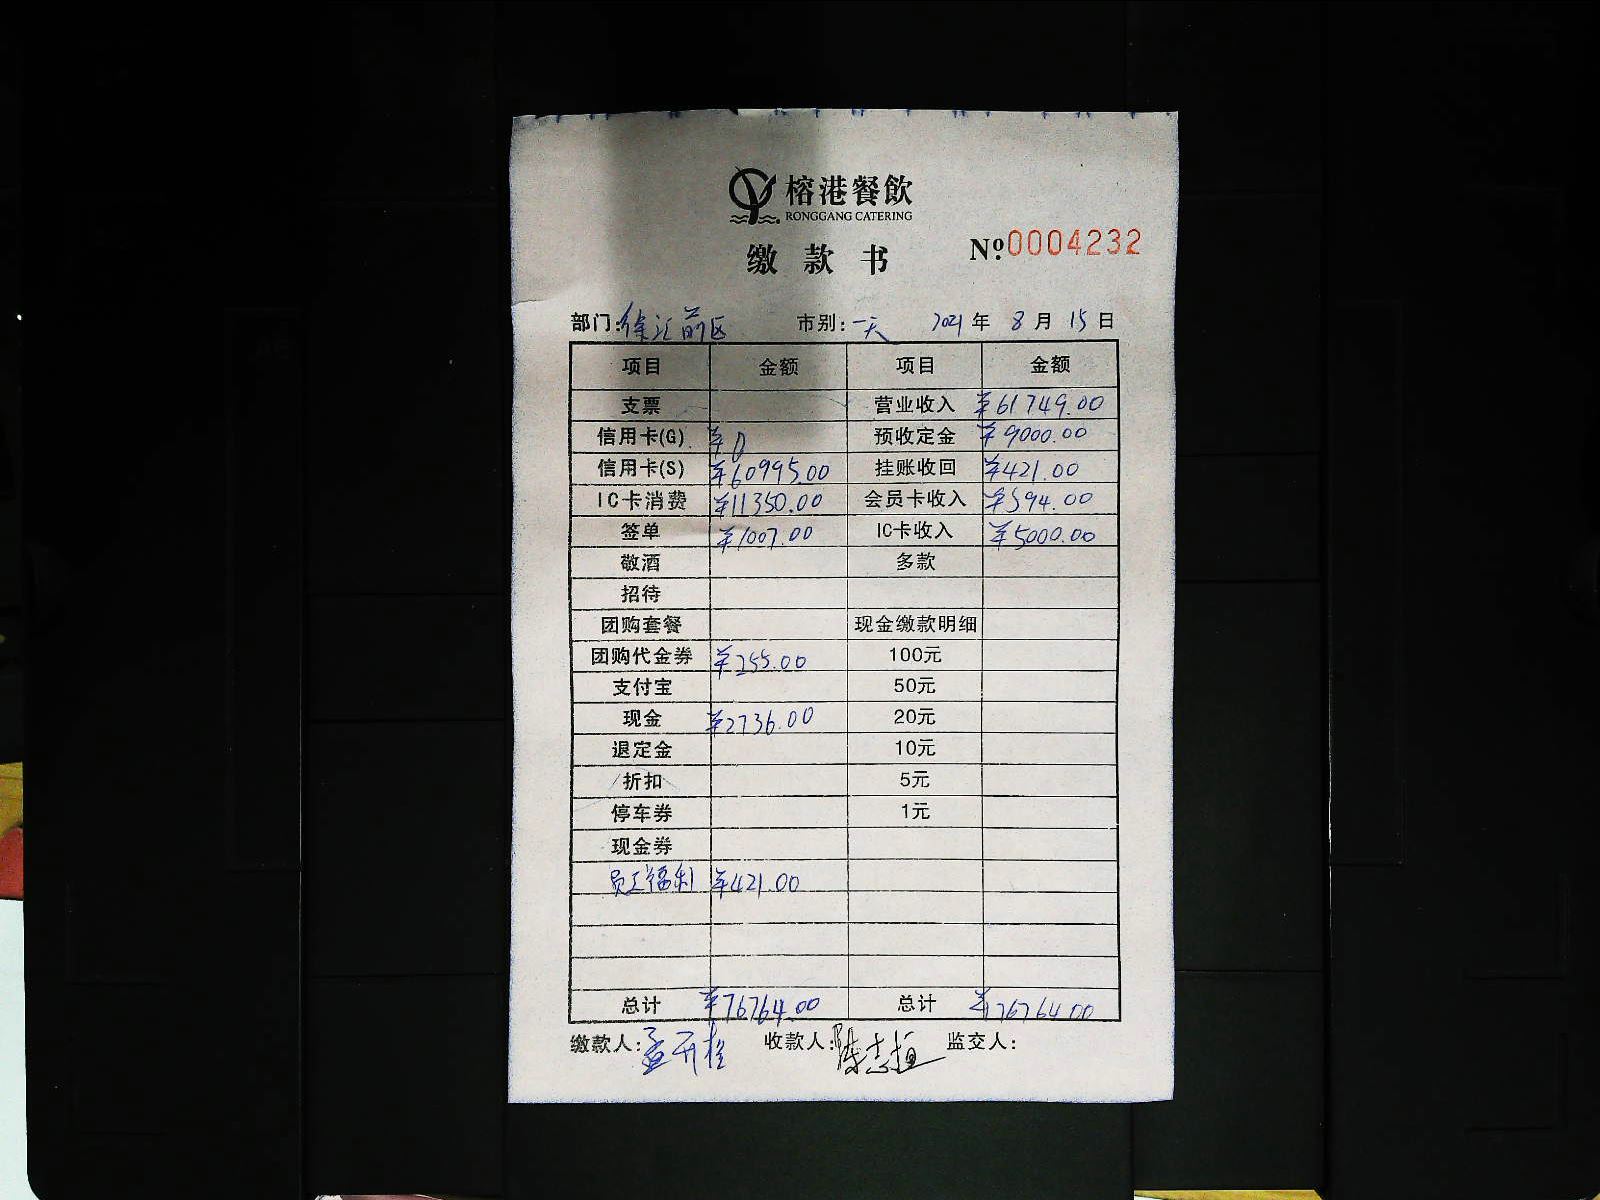 榕港餐飲
RONGGANG CATERING
缴款书 №0004232
部门:徐汇前区 市别:一天 2021年8月15日
项目 金额 项目 金额
支票 营业收入 ¥61749.00
信用卡(G) ¥0 预收定金 ¥9000.00
信用卡(S) ¥60995.00 挂账收回 ¥421.00
IC卡消费 ¥11350.00 会员卡收入 ¥594.00
签单 ¥1007.00 IC卡收入 ¥5000.00
敬酒 多款
招待
团购套餐 现金缴款明细
团购代金券 ¥255.00 100元
支付宝 50元
现金 ¥2736.00 20元
退定金 10元
折扣 5元
停车券 1元
现金券
员工福利 ¥421.00
总计 ¥76764.00 总计 ¥76764.00
缴款人:孟开桂 收款人:陈志恒 监交人: